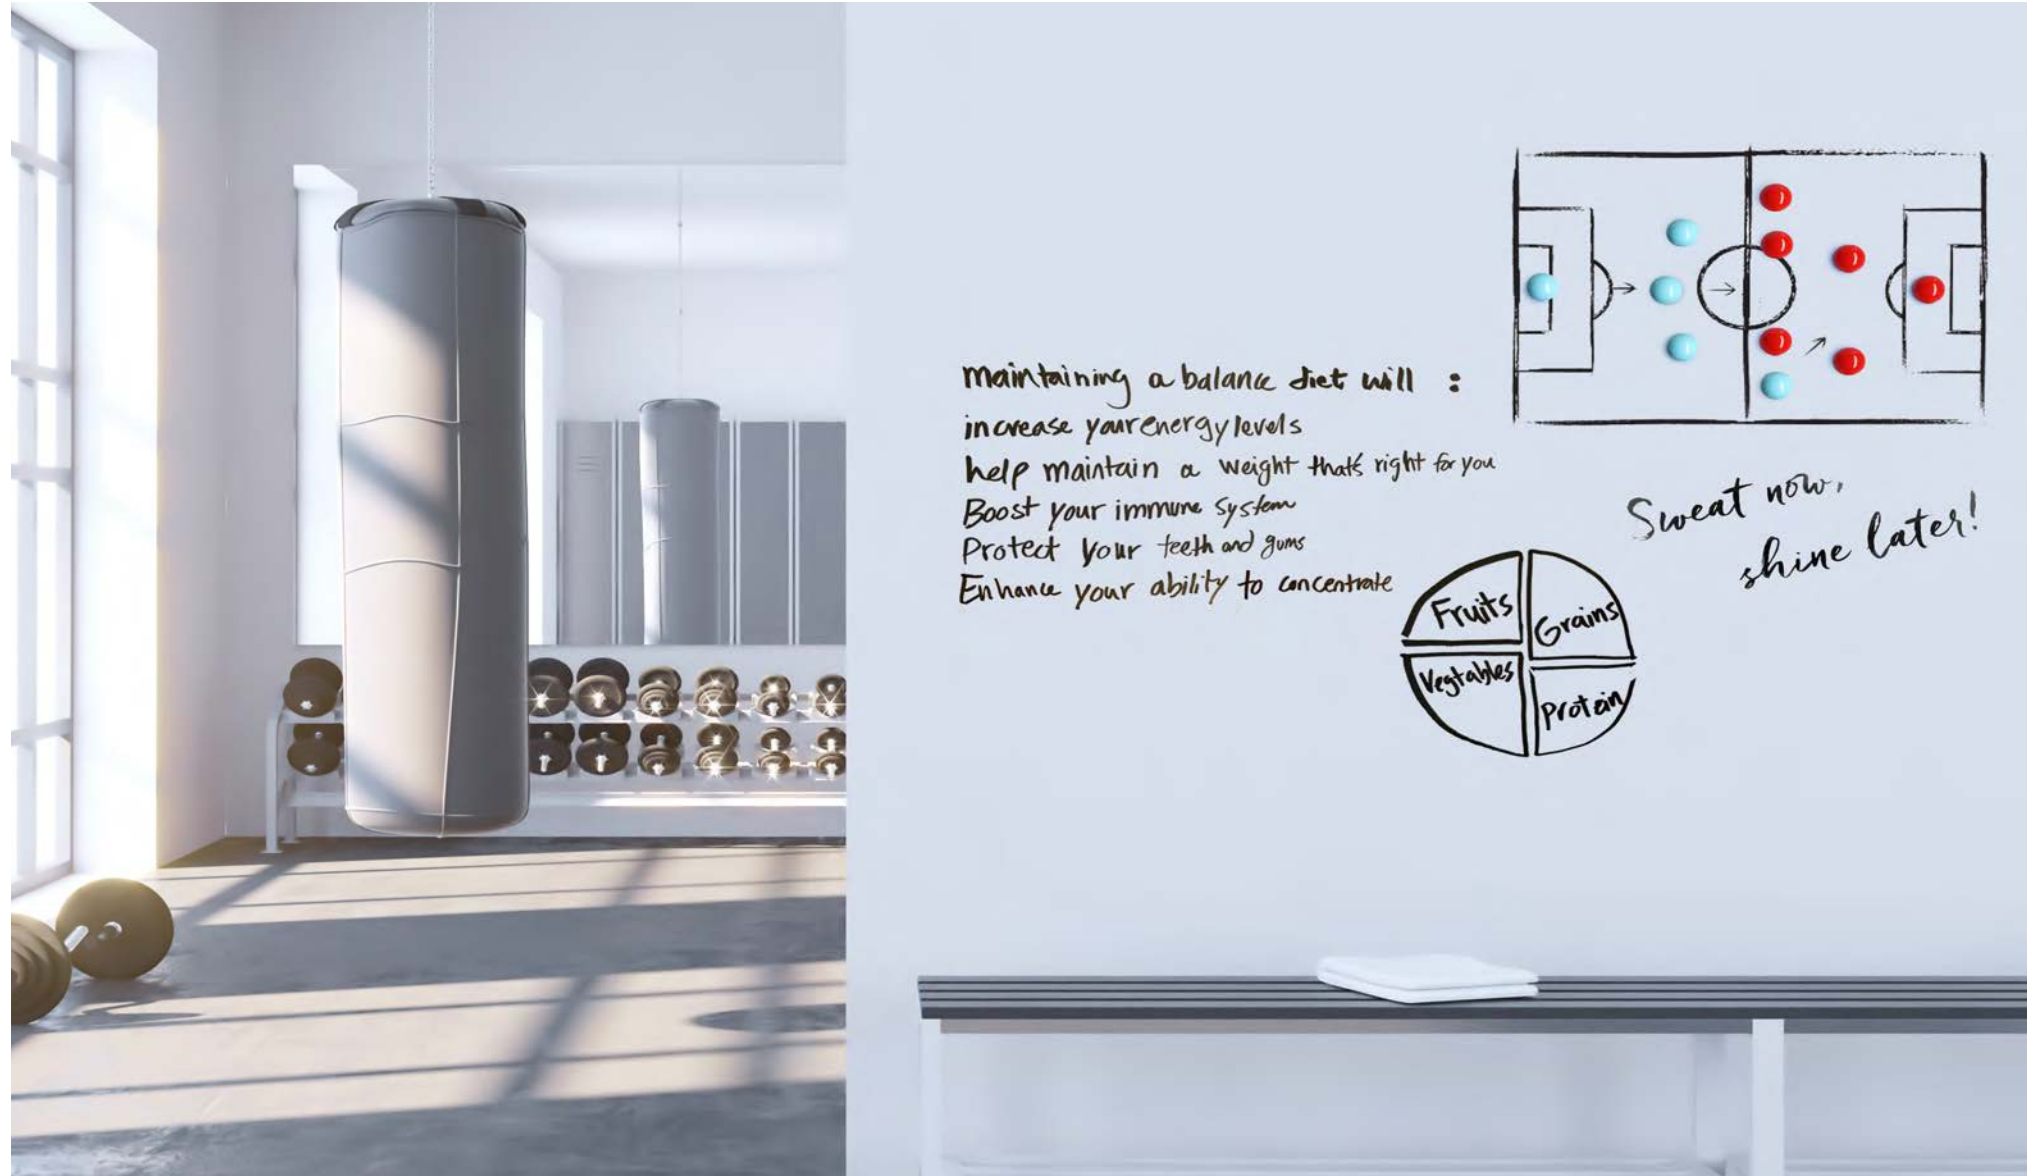 maintaining a balance diet will :
increase your energy levels
help maintain a weight that's right for you
Boost your immune system
Protect your teeth and gums
Enhance your ability to concentrate
Sweat now,
shine later!
Fruits
Grains
Vegtables
Protein